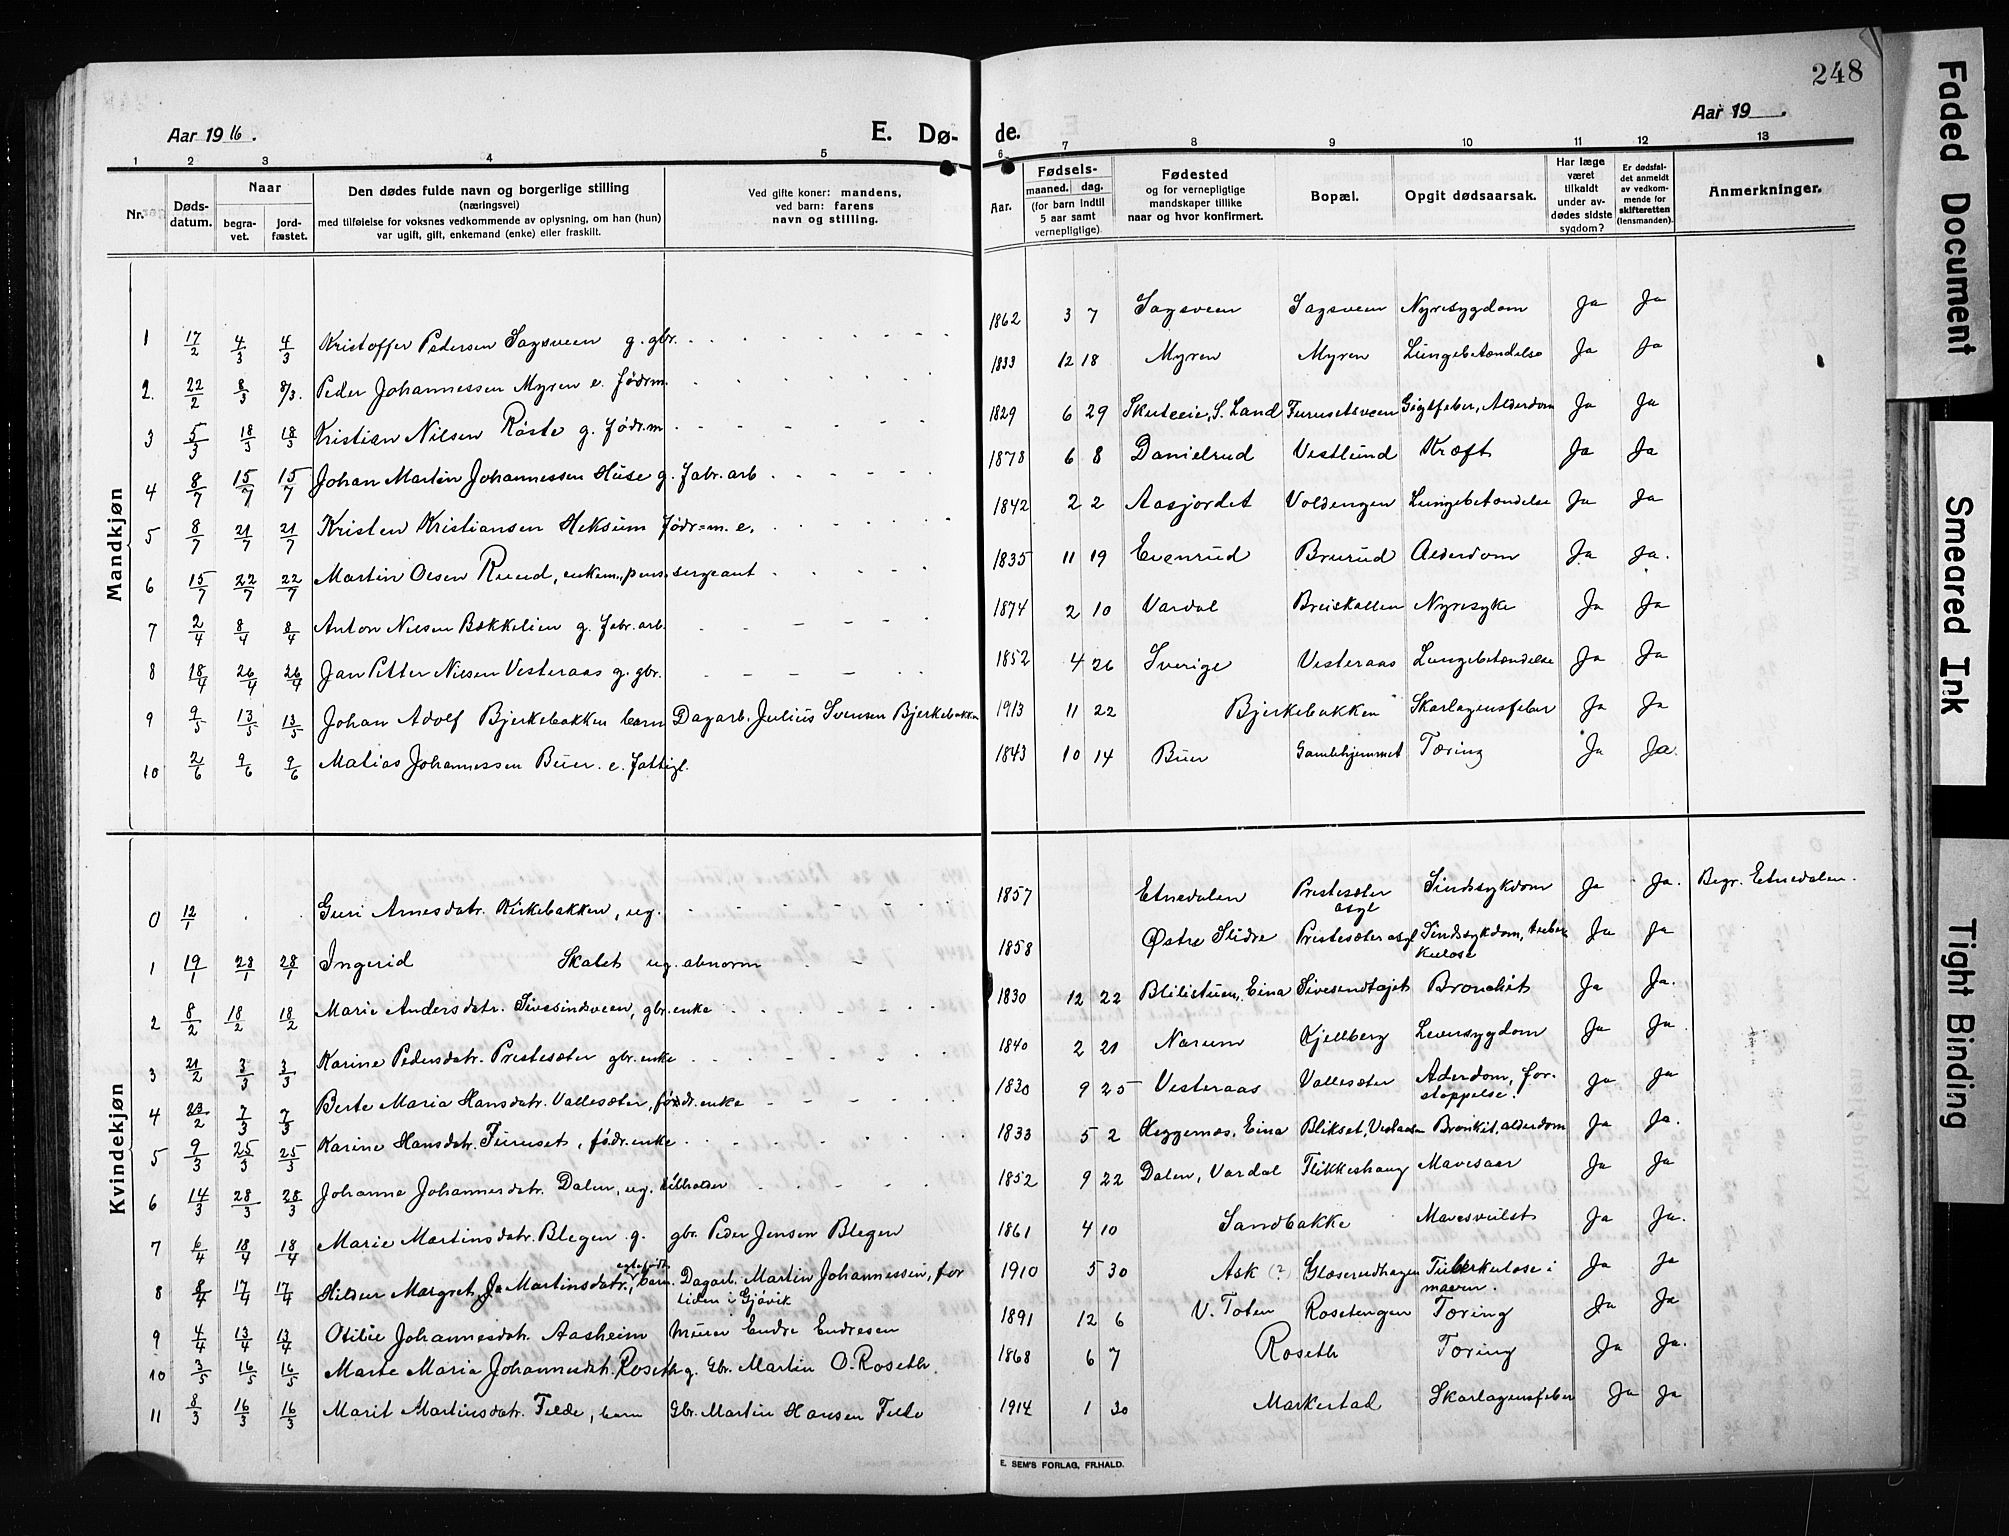 248
Aar 19 16.
E. Dø-
de.
Aar 19 .
1 2 3 4 5
6 7 8 9 10 11 12 13
Nr. Døds-datum. Naar begra-vet. jord-fæstet. Den dødes fulde navn og borgerlige stilling (næringsvei) med tilføielse for voksnes vedkommende av oplysning, om han (hun) var ugift, gift, enkemand (enke) eller fraskilt. Ved gifte koner: mandens, ved barn: farens navn og stilling.
Aar. Fødsels- maaned. dag. (for barn indtil 5 aar samt vernepligtige). Fødested og for vernepligtige mandskaper tillike naar og hvor konfirmert. Bopæl. Opgit dødsaarsak. Har læge været tilkaldt under av-dødes sidste sygdom? Er dødsfal-det anmeldt av vedkom-mende for skifteretten (lensmanden). Anmerkninger.
Mandkjøn
1 17/2 4/3 4/3 Kristoffer Pedersen Sagsveen g. gbr. 1862 3 7 Sagsveen Sagsveen Nyresygdom Ja Ja
2. 22/2 8/3 8/3. Peder Johannessen Myren e. fødrm. 1833 12 18 Myren Myren Lungebetændelse Ja Ja
3 5/3 18/3 18/3 Kristian Nilsen Røste g. fødr.m 1829 6 29 Skuteeie, S. Land Furusetsveen Gigtfeber, Alderdom Ja Ja
4 8/7 15/7 15/7 Johan Martin Johannessen Huse g. fabr.arb 1878 6 8 Danielrud Vestlund Kræft Ja Ja
5 8/7 21/7 21/7 Kristen Kristiansen Heksum fødr=m. e. 1842 2 2 Aasjordet Voldengen Lungebetændelse Ja Ja
6 15/7 22/7 22/7 Martin Olsen Ruud, enkem., pens. sergeant 1835 11 19 Evenrud Brurud Alderdom Ja Ja.
7 2/4 8/4 8/4 Anton Nilsen Bakkelien g. fabr. arb. 1874 2 10 Vardal Breiskallen Nyresyke Ja Ja
8 18/4 26/4 26/4 Jan Petter Nilsen Vesteraas g. gbr. 1852 4 26 Sverige Vesteraas Lungebetændelse Ja Ja
9 9/5 13/5 13/5 Johan Adolf Bjerkebakken barn Dagarb. Julius Svensen Bjerkebakken 1913 11 22 Bjerkebakken Skarlagensfeber Ja Ja
10 2/6 9/6 9/6 Matias Johannessen Buer. e. fattigl. 1843 10 14 Buer Gamlehjemmet Tæring Ja Ja.
Kvindekjøn
0 12/1 Guri Arnesdatr. Kirkebakken, ug. 1857 Etnedalen Prestesæter asyl Sindssykdom Ja Ja. Begr. Etnedalen.
1 19/1 28/1 28/1 Ingerid Skalet ug. abnorm 1858 Østre Slidre Prestesæter asyl Sindssykdom, tuber kulose Ja Ja
2 8/2 18/2 18/2 Marie Andersdatr. Sivesindsveen, gbr.enke 1830 12 22 Blilistuen, Eina Sivesendtajet Bronchit Ja Ja.
3 21/2 3/3 3/3 Karine Pedersdatr. Prestesæter gbr. enke 1840 2 21 Narum Kjellberg Leversygdom Ja Ja.
4 22/2 7/3 7/3 Berte Maria Hansdatr. Vallesæter, fødr. enke 1830 9 25 Vesteraas Vallesæter Aderdom, for-stoppelse. Ja Ja
5 9/3 25/3 25/3 Karine Hansdatr. Furuset, fødr. enke 1833 5 2 Heggernæs, Eina Blikset, Bronkit, alderdom Ja Ja.
6 14/3 28/3 28/3 Johanna Johannesdatr. Dalen, ug. 1852 9 22 Dalen, Vardal Flikkeshaug Mavesaar Ja Ja
7 6/4 18/4 18/4 Marie Martinsdatr. Blegen g. gbr. Peder Jensen Blegen 1861 4 10 Sandbakke Mavesvulst Ja Ja.
8 8/4 17/4 17/4 Hildur Margret Martinsdatr. egtefødt barn. Dagarb. Martin Johannessen, for tiden i Gjøvik 1910 5 30 Ask (?) Glæserudhagen Tuberkulose i maven. Ja Ja
9 4/4 13/4 13/4 Otilie Johannesdatr. Aasheim Murer Endre Endresen 1891 12 6 V. Toten Rosetengen Tæring Ja Ja
10 3/5 16/5 16/5 Marte Maria Johannesdatr. Roseth g. Gbr. Martin O. Roseth. 1868 6 7 Roseth Tæring Ja Ja.
11 8/3 16/3 16/3 Marit Martinsdatr. Felde, barn Gbr. Martin Hansen Felde 1914 1 30 Markestad Skarlagensfeber Ja Ja
E. SEM'S FORLAG, FR.HALD.
Faded Document
Smeared Ink
Tight Binding